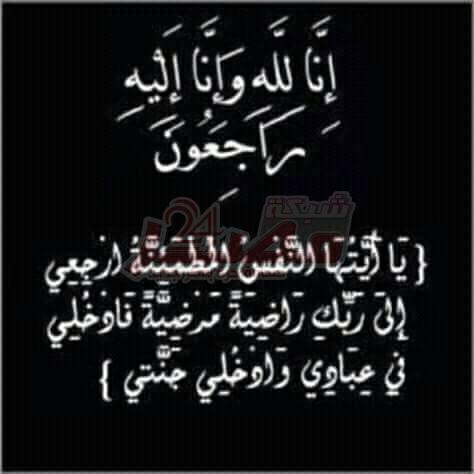 إِنَّا لِلَّهِ وَإِنَّا إِلَيْهِ
رَاجَعُونَ
شبكة
24
{ يَا أَيَّتُهَا النَّفْسُ الْمُطْمَئِنَّةُ ارْجِعِي
إِلَى رَبِّكِ رَاضِيَةً مَرْضِيَّةً فَادْخُلِي
فِي عِبَادِي وَادْخُلِي جَنَّتِي }